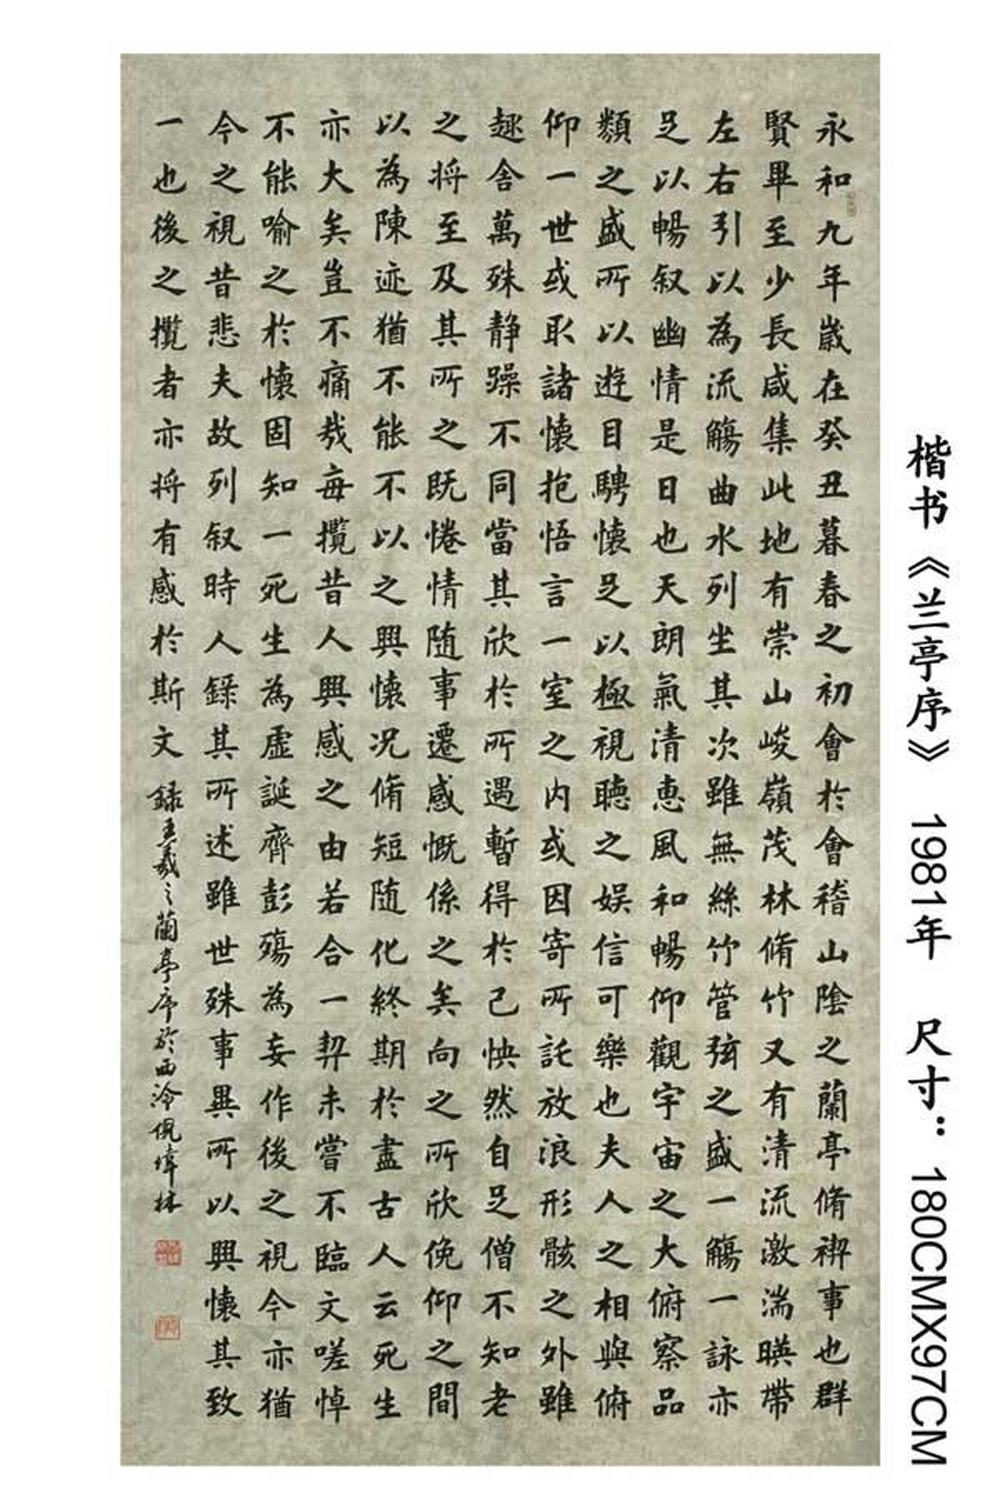 永和九年歲在癸丑暮春之初會於會稽山陰之蘭亭脩禊事也群
賢畢至少長咸集此地有崇山峻嶺茂林脩竹又有清流激湍暎帶
左右引以為流觴曲水列坐其次雖無絲竹管弦之盛一觴一詠亦
足以暢叙幽情是日也天朗氣清惠風和暢仰觀宇宙之大俯察品
類之盛所以遊目騁懷足以極視聽之娛信可樂也夫人之相與俯
仰一世或取諸懷抱悟言一室之内或因寄所託放浪形骸之外雖
趣舍萬殊静躁不同當其欣於所遇暫得於己怏然自足僧不知老
之將至及其所之既惓情随事遷感慨係之矣向之所欣俛仰之間
以為陳迹猶不能不以之興懷况脩短随化終期於盡古人云死生
亦大矣豈不痛哉每攬昔人興感之由若合一契未嘗不臨文嗟悼
不能喻之於懷固知一死生為虛誕齊彭殤為妄作後之視今亦猶
今之視昔悲夫故列叙時人錄其所述雖世殊事異所以興懷其致
一也後之攬者亦將有感於斯文 錄王羲之蘭亭序於西泠佩林
楷书《兰亭序》 1981年 尺寸：180CMX97CM